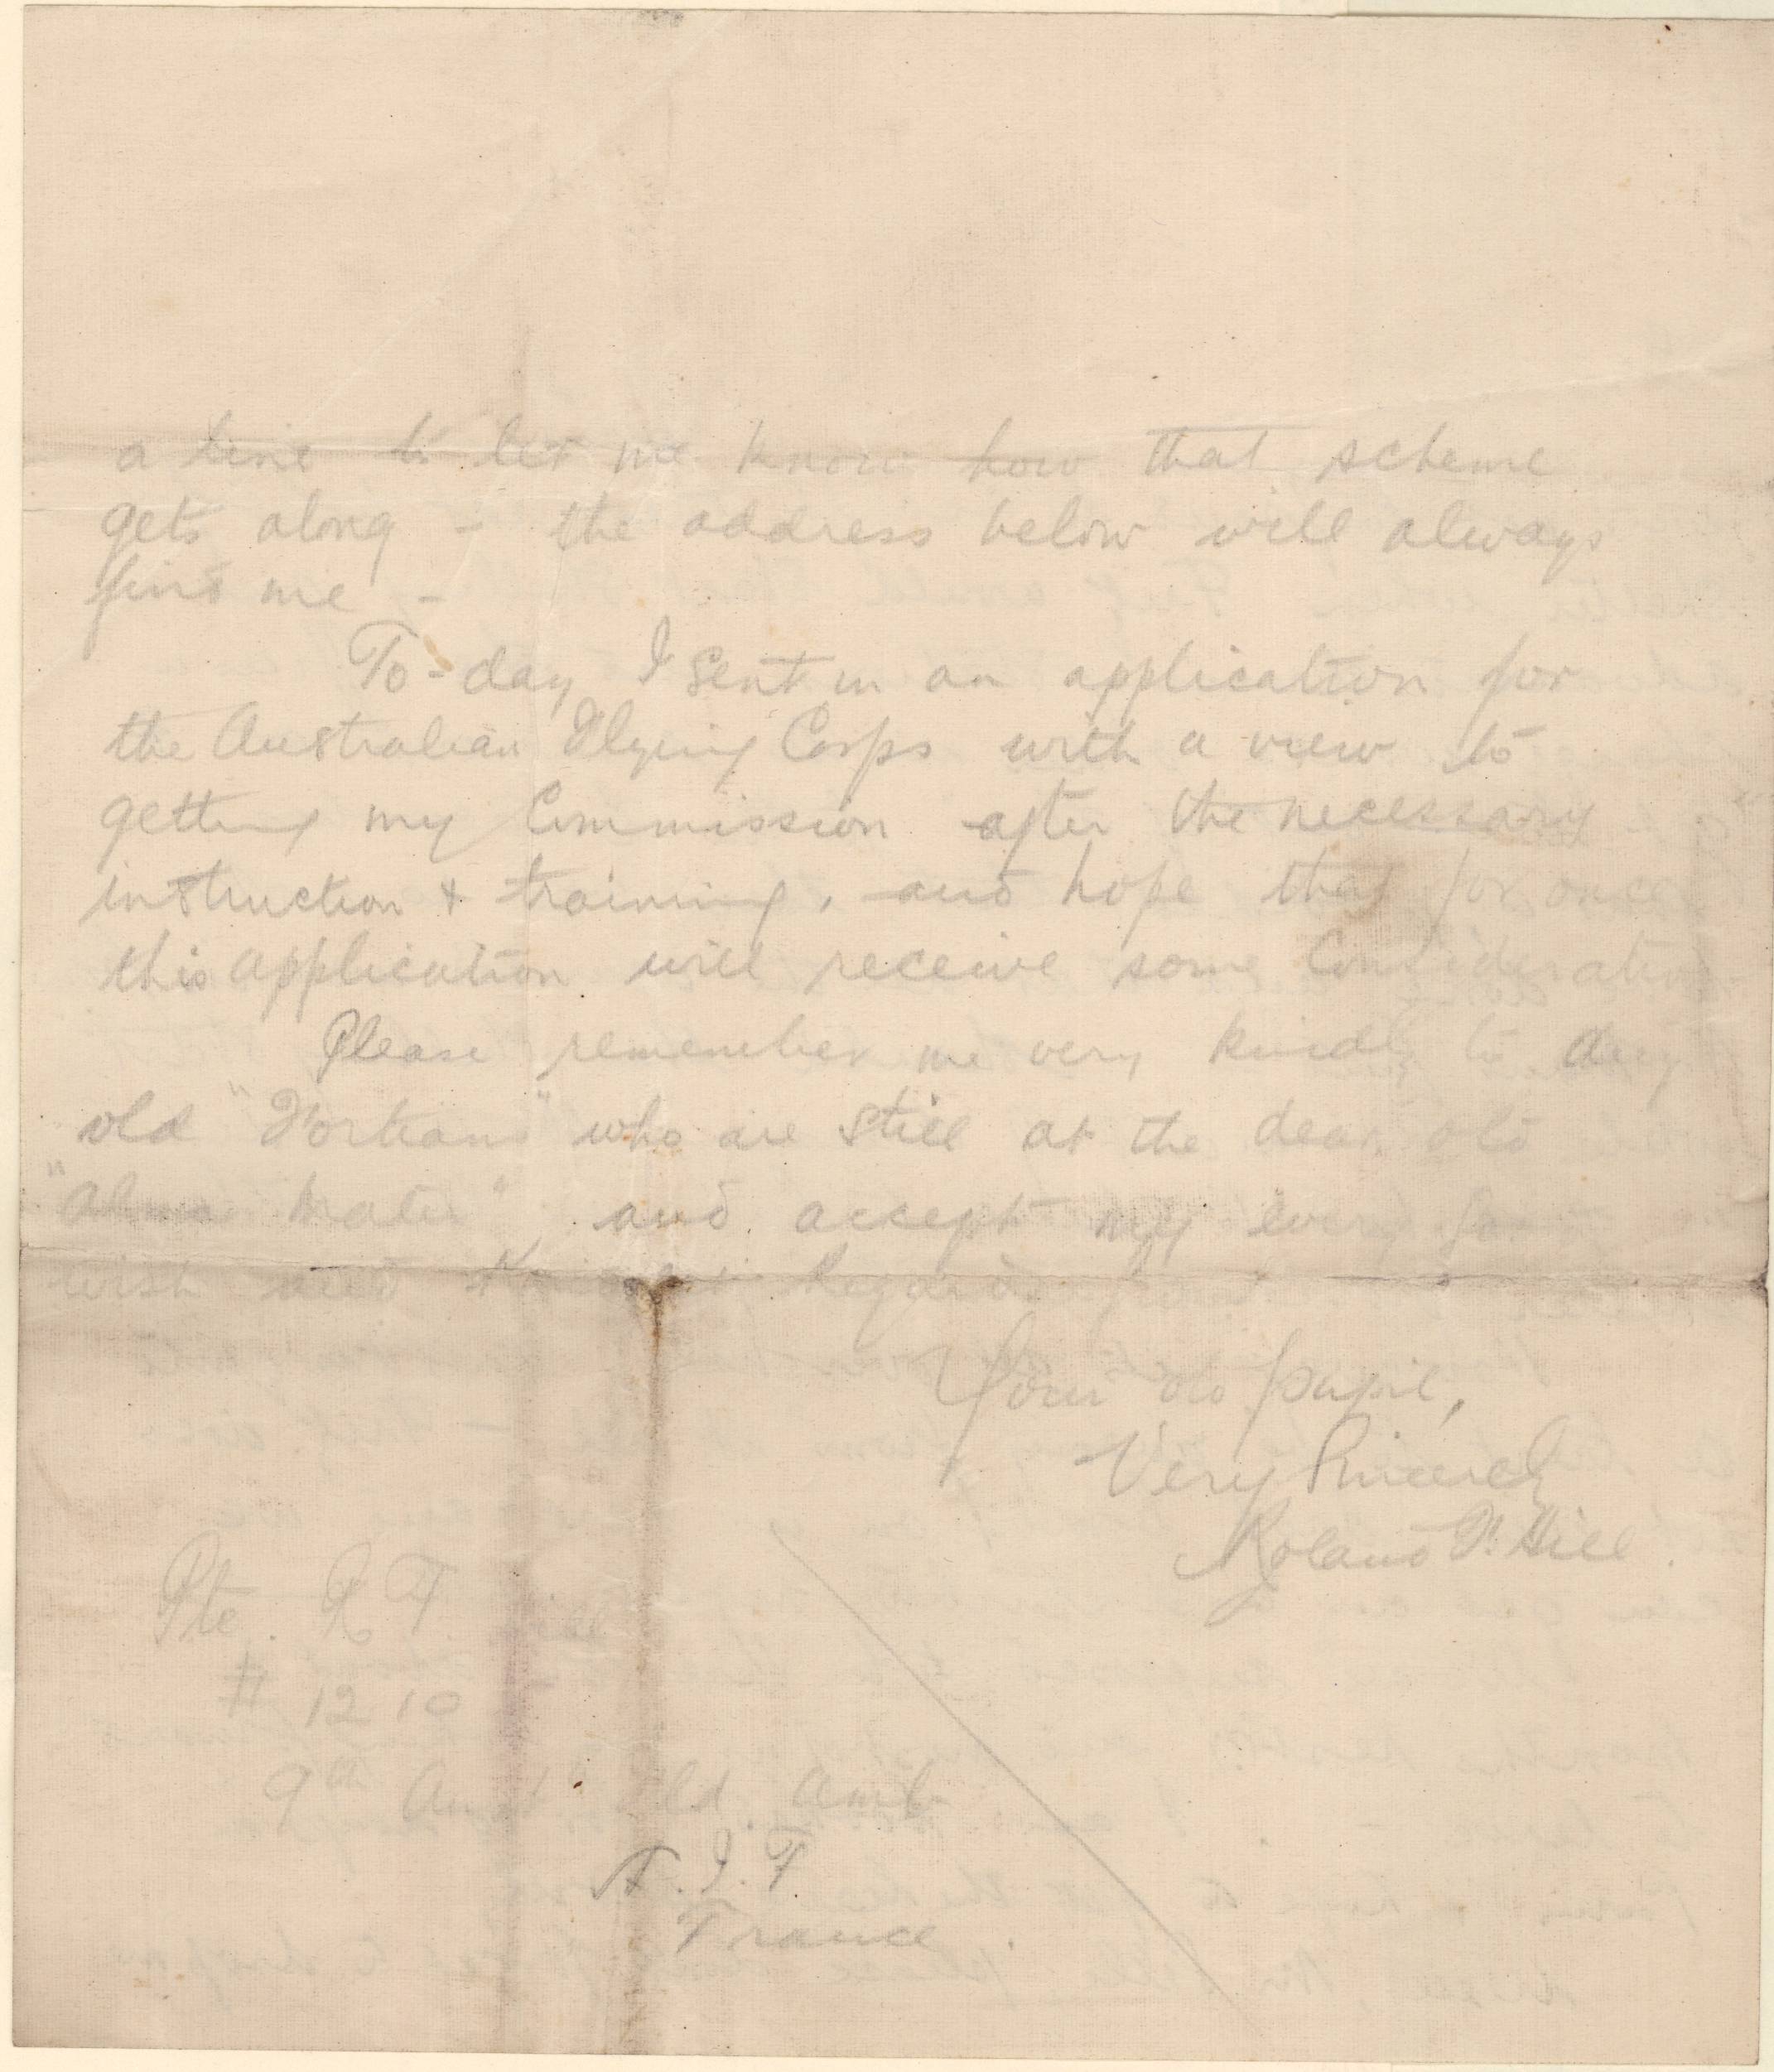 a line to let me know how that scheme
gets along - the address below will always
find me -
To-day I sent in an application for
the Australian Flying Corps with a view to
getting my Commission after the necessary
instruction & training, and hope that for once
this application will receive some Consideration
Please remember me very kindly to any
old "Fortians" who are still at the dear old
"Alma Mater" and accept my every
wish and Kindest Regards from
Your old pupil,
Very Sincerely
Roland T. Hill.
Pte. R T. Hill
# 1210
9th Aust Fld. Amb
A.I.F.
France.